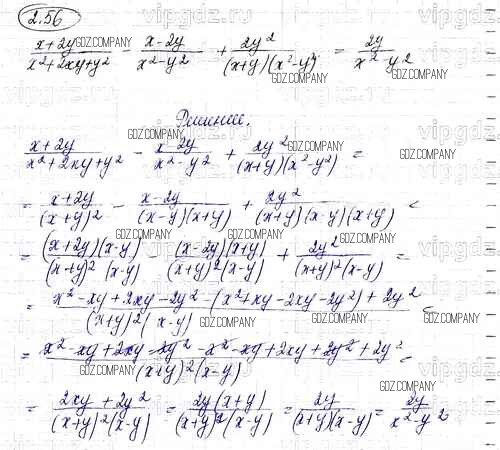 2.56
(x+2y)/(x²+2xy+y²) - (x-2y)/(x²-y²) + 2y²/((x+y)(x²-y²)) = 2y/(x²-y²)
Решение.
(x+2y)/(x²+2xy+y²) - (x-2y)/(x²-y²) + 2y²/((x+y)(x²-y²)) =
= (x+2y)/(x+y)² - (x-2y)/((x-y)(x+y)) + 2y²/((x+y)(x-y)(x+y)) =
= (x+2y)(x-y)/((x+y)²(x-y)) - (x-2y)(x+y)/((x+y)²(x-y)) + 2y²/((x+y)²(x-y)) =
= (x²-xy+2xy-2y²-(x²+xy-2xy-2y²)+2y²)/((x+y)²(x-y)) =
= (x²-xy+2xy-2y²-x²-xy+2xy+2y²+2y²)/((x+y)²(x-y)) =
= (2xy+2y²)/((x+y)²(x-y)) = 2y(x+y)/((x+y)²(x-y)) = 2y/((x+y)(x-y)) = 2y/(x²-y²)
GDZ.COMPANY
vipgdz.ru